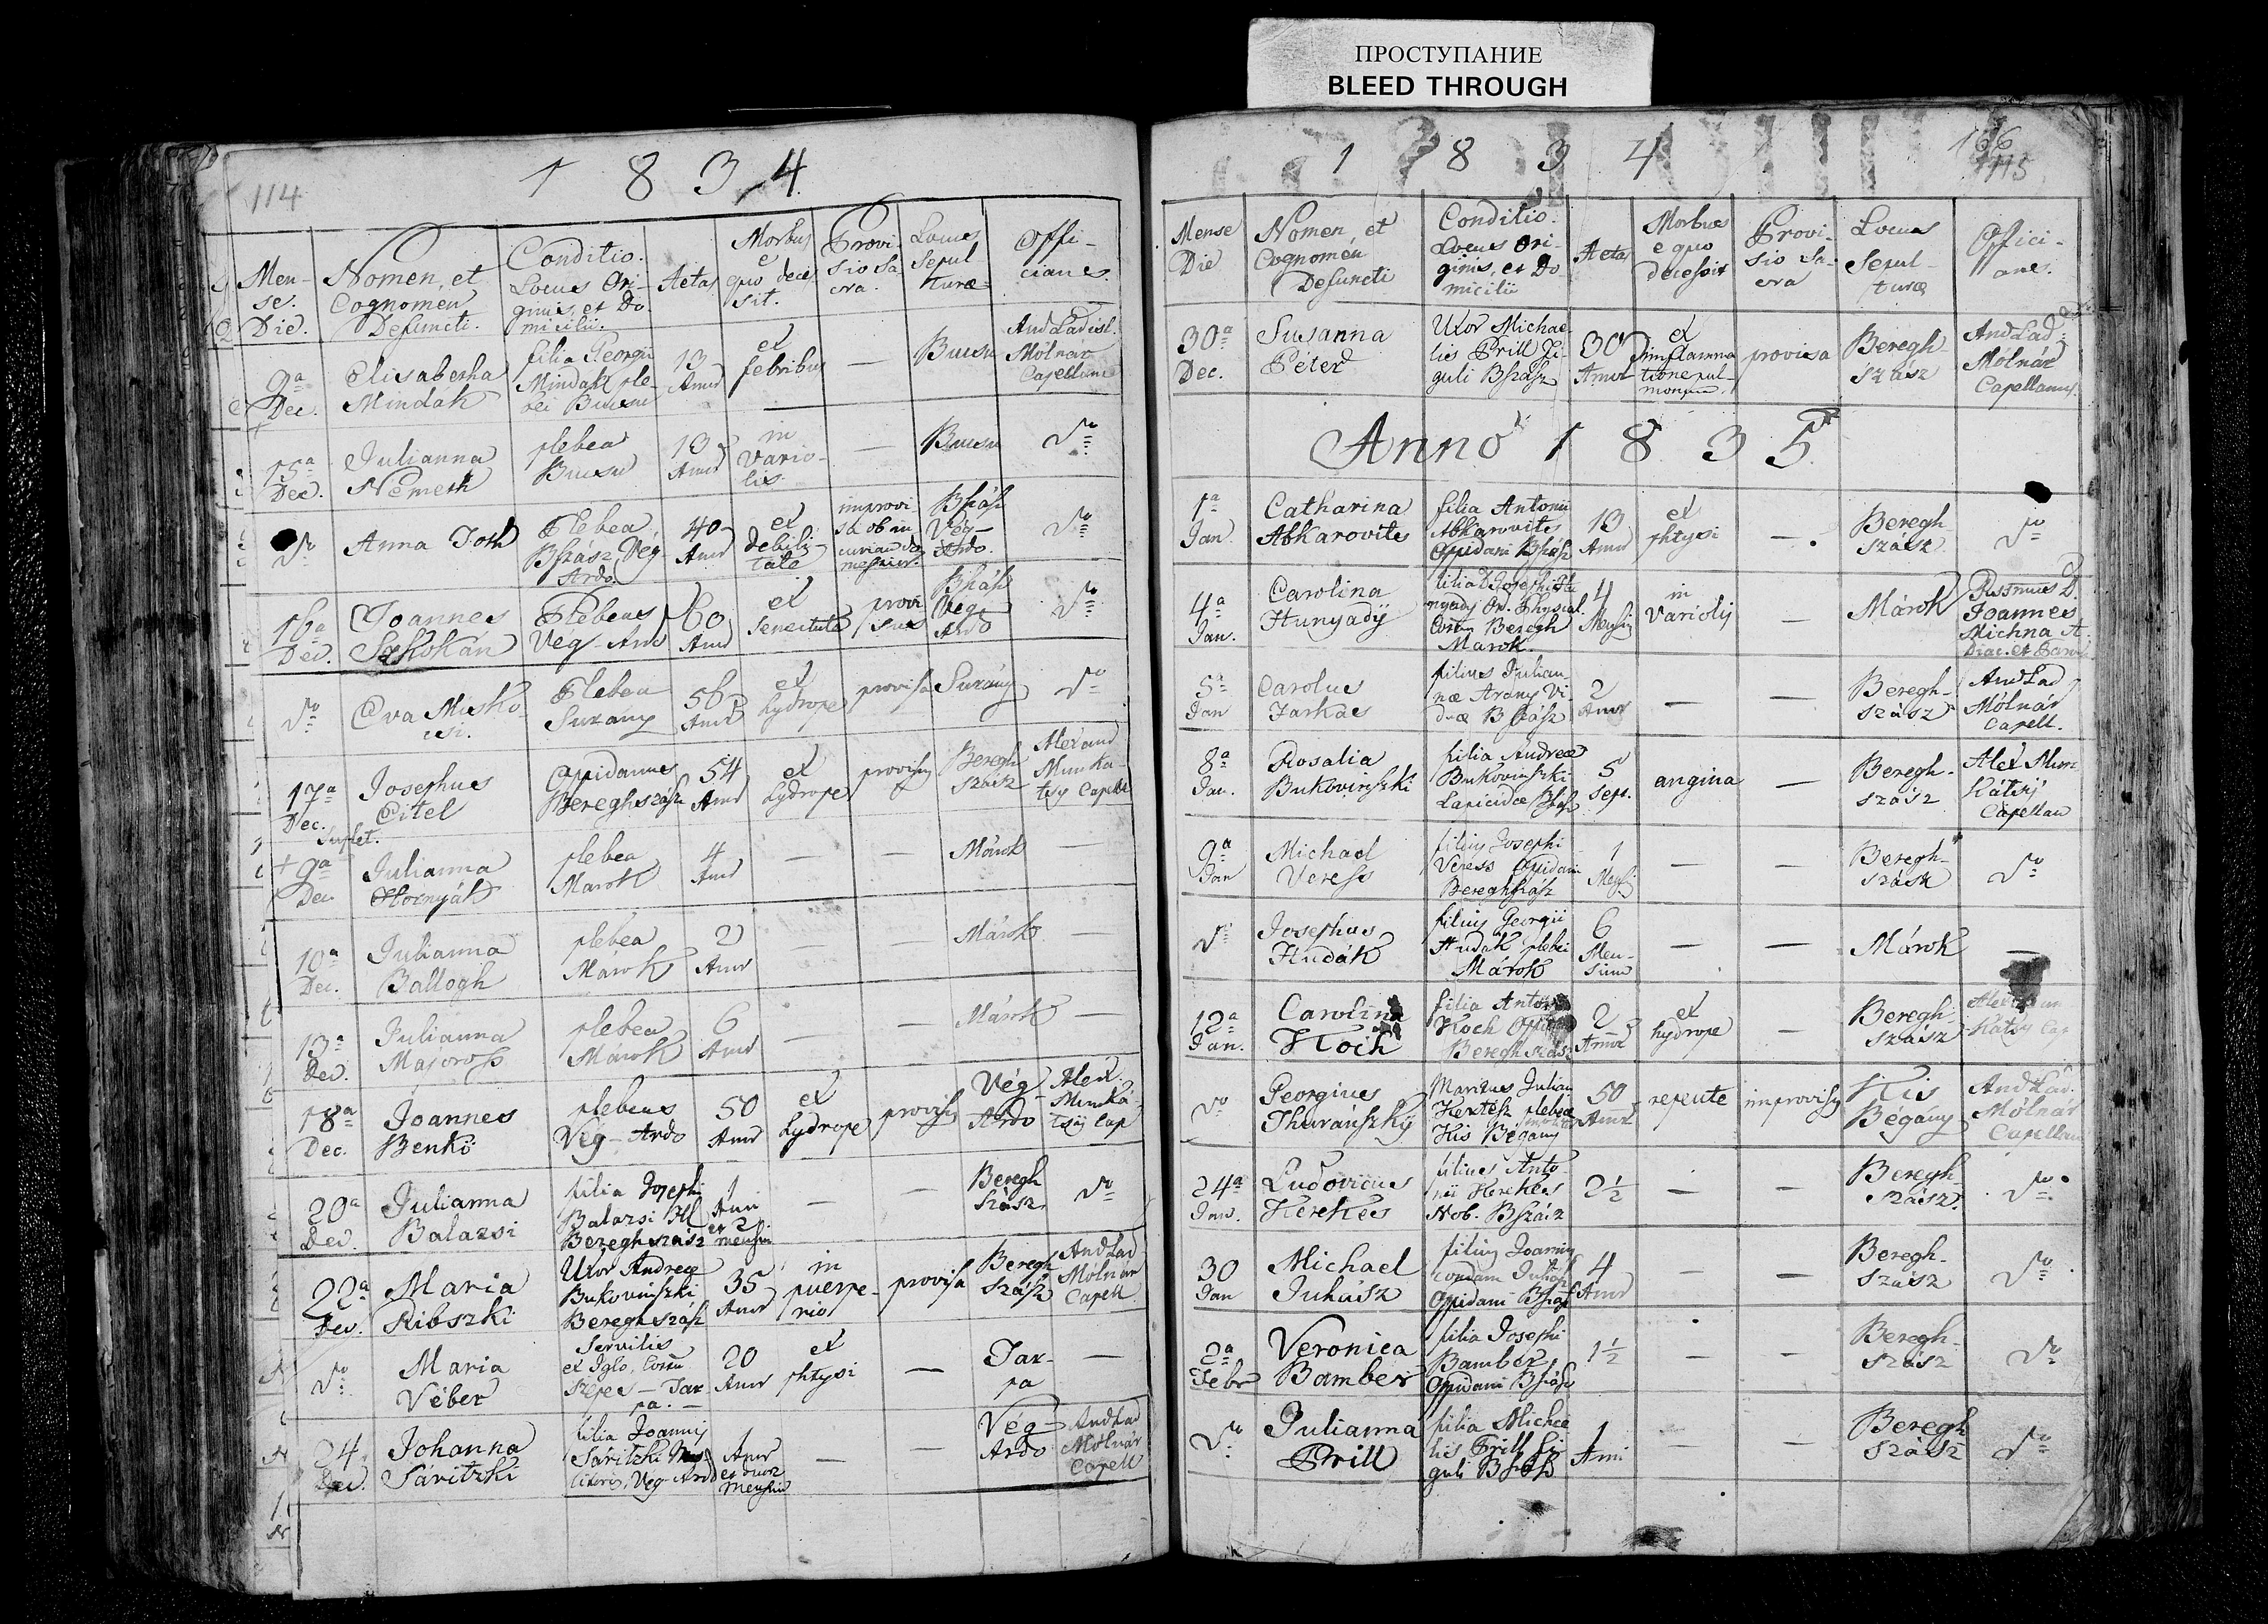 ПРОСТУПАНИЕ
BLEED THROUGH
114
1 8 3 4
Men-
se.
Die.
Nomen, et
Cognomen
Defuncti.
Conditio.
Locus Ori-
ginis, et Do-
micilii.
Aetas
Morbus
e
quo deces
sit.
Provi-
sio Sa
cra.
Locus
Sepul
turæ
Offi-
cians.
9a
Dec.
Elisabetha
Mindak
filia Georgii
Mindak ple-
bei Bucsu
13
Annor
ex
febribus
—
Bucsu
And Ladisl.
Mólnár
Capellanus
15a
Dec.
Julianna
Németh
plebea
Bucsu
13
Annor
in
vario-
lis
—
Bucsu
do
do
Anna Toth
Plebea
Bszász Vég
Ardo.
40
Annor
ex
debili
tate
improvi-
sa ob in
curiam do
mesticor.
Bszász
Vég-
Ardo.
do
16a
Dec.
Joannes
Szkokán
Plebeus
Veg-Ardo
60
Annor
ex
senectute
provi
sus
Bszász
Veg-
Ardo
do
do
Eva Misko-
Plebea
Surány
56
Annor
ex
hydrope
provisa
Surány
do
17a
Dec.
Josephus
Eitel
Oppidanus
Beregszász
54
Annor
ex
hydrope
provisus
Beregh
szász
Alexand
Munka-
tsy Capell
Suplet.
+ 9a
Dec.
Julianna
Hornyák
plebea
Marok
4
Annor
—
—
Márok
—
10a
Dec.
Julianna
Ballogh
plebea
Márok
2
Annor
—
Márok
—
13a
Dec.
Julianna
Majoross
plebea
Márok
6
Annor
—
—
Márok
—
18a
Dec.
Joannes
Benkö
plebeus
Vég-Ardo
50
Annor
ex
hydrope
provisus
Vég-
Ardo
Alex.
Munká-
tsÿ Cap
20a
Dec.
Julianna
Balazsi
filia Josephi
Balazsi
Bereghszász
1
Anni
et 2
mensium
—
—
Beregh
szász
do
22a
Dec.
Maria
Ribszki
Uxor Andreæ
Bukovinszki
Bereghszász
35
Annor
in
puerpe-
rio
provisa
Beregh
szász
And Lad
Mólnár
Capell
do
Maria
Véber
Servilis
ex Iglo, Cottu
Szepes — Tar
pa. —
20
Annor
ex
phtysi
—
Tar-
pa
—
24
Dec.
Johanna
Sáritzki
filia Joannis
Sáritzki
Veg-Ardo
Annor
et
mensium
—
—
Vég-
Ardo
And Lad
Mólnár
Capell
1 8 3 4
166
115
Mense
Die
Nomen, et
Cognomen
Defuncti
Conditio.
Locus Ori-
ginis, et Do
micilii
Aetas
Morbus
e quo
decessit
Provi-
sio Sa-
cra
Locus
Sepul-
turæ
Offici-
ans.
30a
Dec.
Susanna
Péter
Uxor Michae-
lis Prill Fi-
guli Bszász
30
Annor
ex
inflamma
tione pul-
monum.
provisa
Beregh-
szász
And Lad.
Mólnár
Capellanus.
Anno 1 8 3 5
1a
Jan.
Catharina
Abkarovits
filia Antonii
Abkarovits
Oppidani Bszász
13
Annor
ex
phtysi
—
Beregh
szász
do
4a
Jan.
Carolina
Hunyadÿ
filia D Josephi Hu
nyady Or. Physici
Cottus Beregh
Marok.
4
Mensium
in
Variolis
—
Márok
D.
Joannes
Michna A.
Diac. et Paroch
5a
Jan
Carolus
Farkas
filius Julian-
næ Arany Vi-
duæ Bszász
2
Annor
—
—
Beregh-
szász
And Lad
Mólnár
Capell.
8a
Jan.
Rosalia
Bukovinszki
filia Andreæ
Bukovinszki
Lapicidæ Bszász
5
Sept.
angina
—
Beregh-
szász
Alex Mun
kátsy
Capellan
9a
Jan
Michael
Veress
filius Josephi
Veress Oppidani
Bereghszász
1
Mensis
—
—
Beregh-
szász
do
do
Josephus
Hudák
filius Georgii
Hudák plebei
Márok
6
Men-
sium
—
—
Márok
—
12a
Jan.
Carolina
Koch
filia Antonii
Koch
Bereghszász
2
Annor
ex
hydrope
—
Beregh
szász
kátsy Cap
do
Georgius
Thuránszkÿ
Maritus Julian
Kertész plebeæ
Kis Bégány
50
Annor
repente
improvisus
Kis
Bégany
And Lad.
Mólnár
Capellan
24a
Jan.
Ludovicus
Kerekes
filius Anto-
nii Kerekes
Nob. Bszász
2½
—
—
Beregh-
szász
do
30
Jan
Michael
Juhász
filius Joannis
condam Juhász
Oppidani Bszász
4
Annor
—
—
Beregh-
szász
do
2a
Febr
Veronica
Bamber
filia Josephi
Bamber
Oppidani Bszász
1½
—
—
Beregh-
szász
do
do
Julianna
Prill
filia Michae
lis Prill Fi-
guli Bszász
1
Anni
—
—
Beregh
szász
do